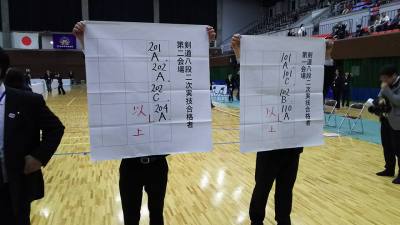 剣道八段二次実技合格者
第二会場
201A
202A
202C
204A
以上
剣道八段二次実技合格者
第一会場
101A
101C
102B
110A
以上